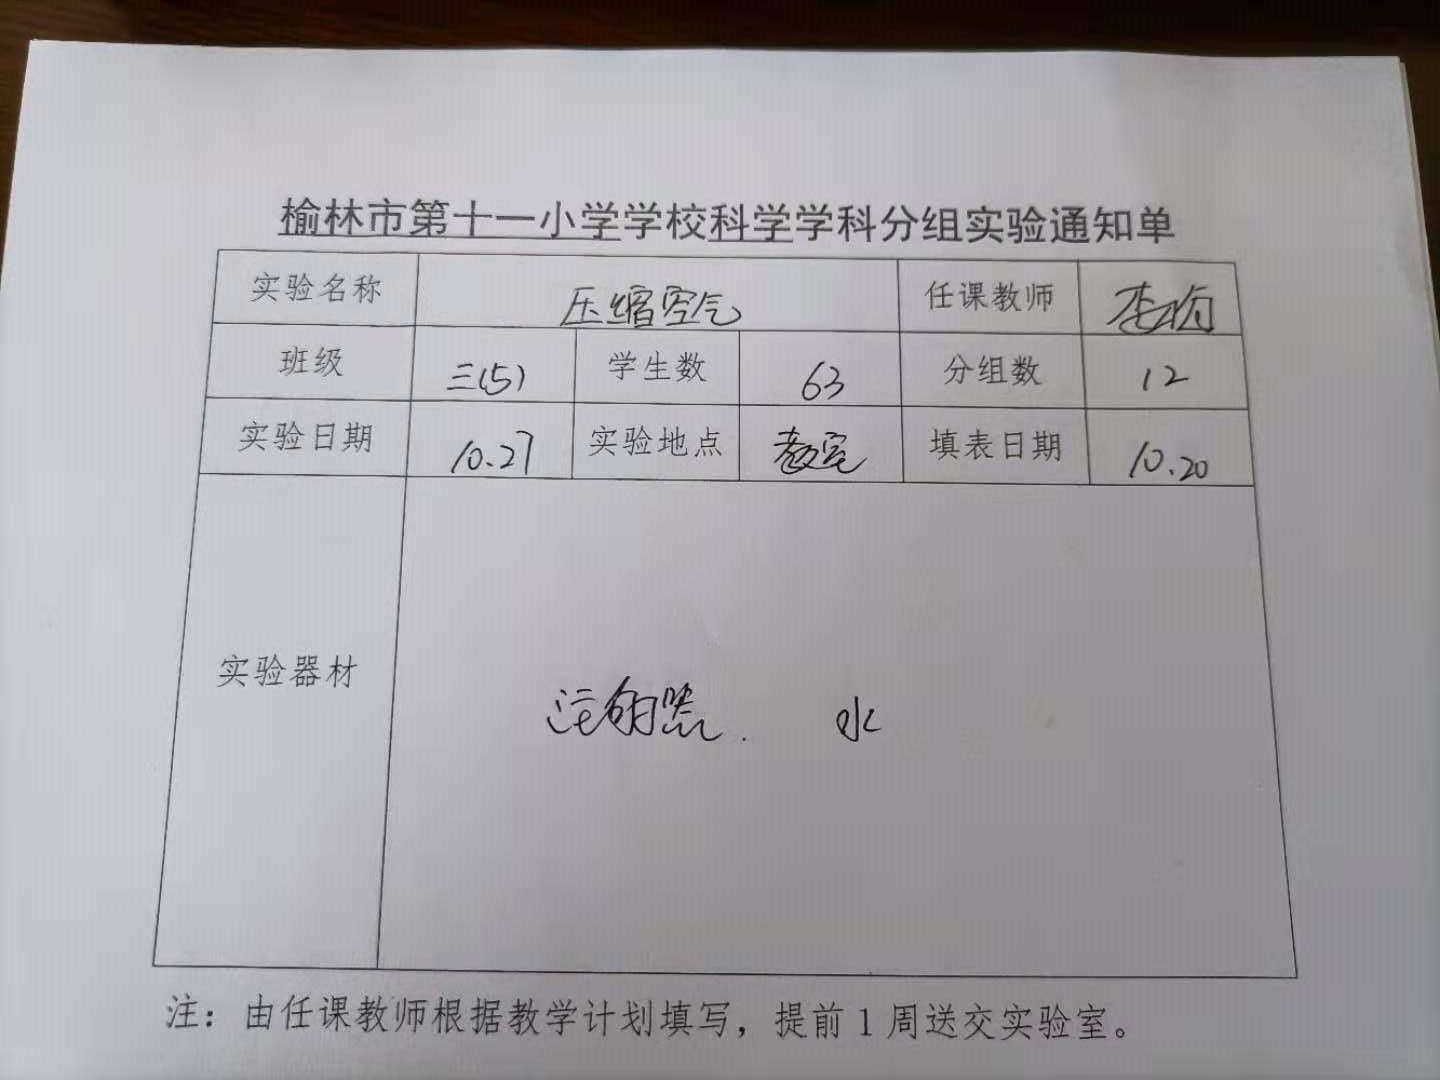 榆林市第十一小学学校科学学科分组实验通知单
实验名称 压缩空气 任课教师
班级 三(5) 学生数 63 分组数 12
实验日期 10.27 实验地点 教室 填表日期 10.20
实验器材 注射器. 水
注：由任课教师根据教学计划填写，提前1周送交实验室。